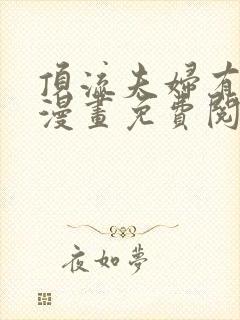 頂流夫婦有
漫畫免費閱
夜如夢